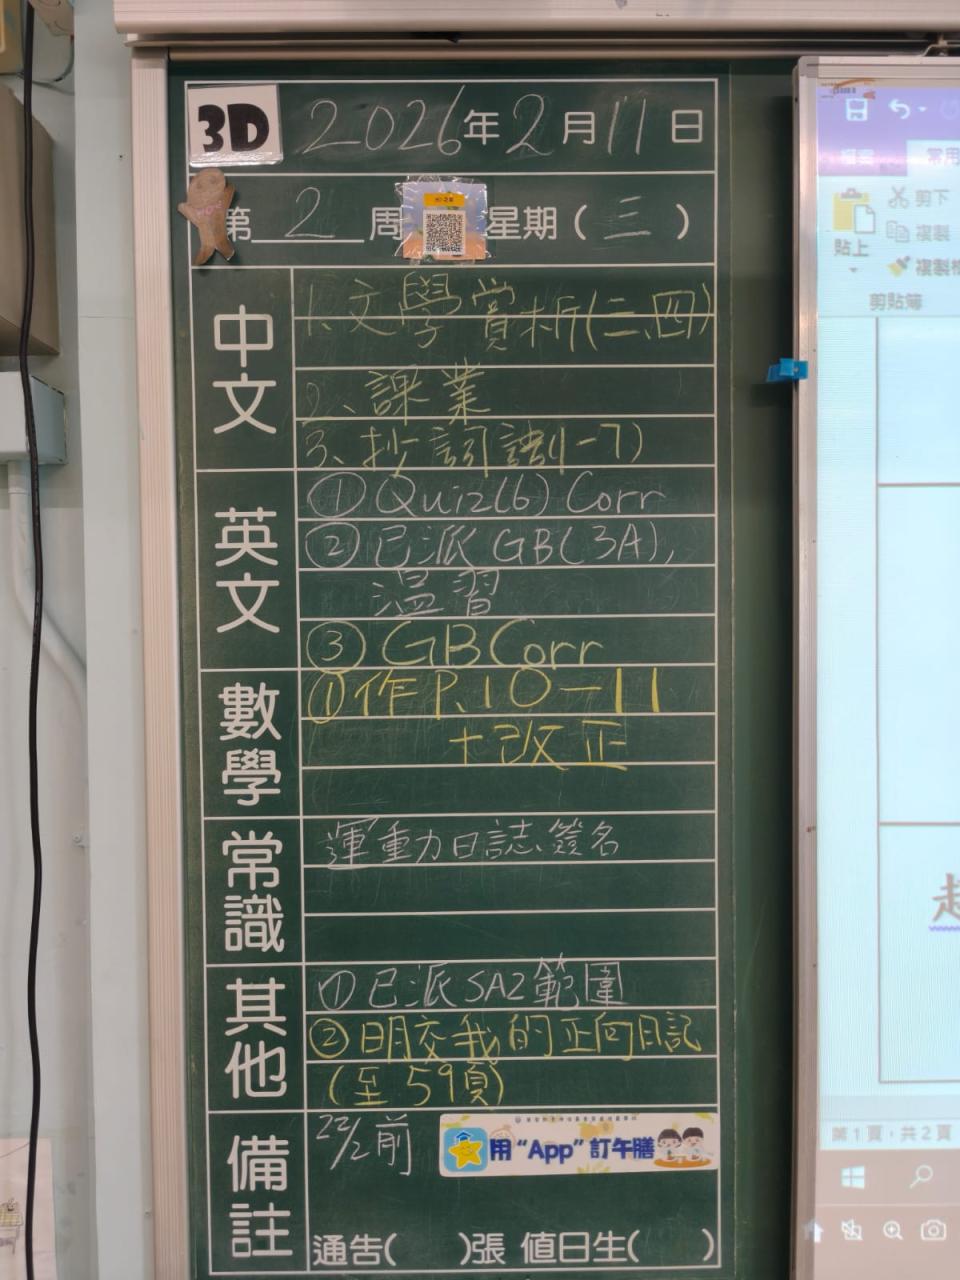 3D 2026年2月11日
第 2 周 星期(三)
中文
1.文學賞析(三,四)
2、課業
3、抄詞語(1-7)
英文
① Quiz(6) Corr
② 已派 GB(3A),
溫習
③ GB Corr
數學
① 作 P.10-11
+改正
常識
運動日誌簽名
其他
① 已派 SA2範圍
② 明交我的正向日記
(至59頁)
備註
22/2前
用“App”訂午膳
通告( )張 值日生( )
常用
貼上
剪下
複製
剪貼簿
第1頁,共2頁